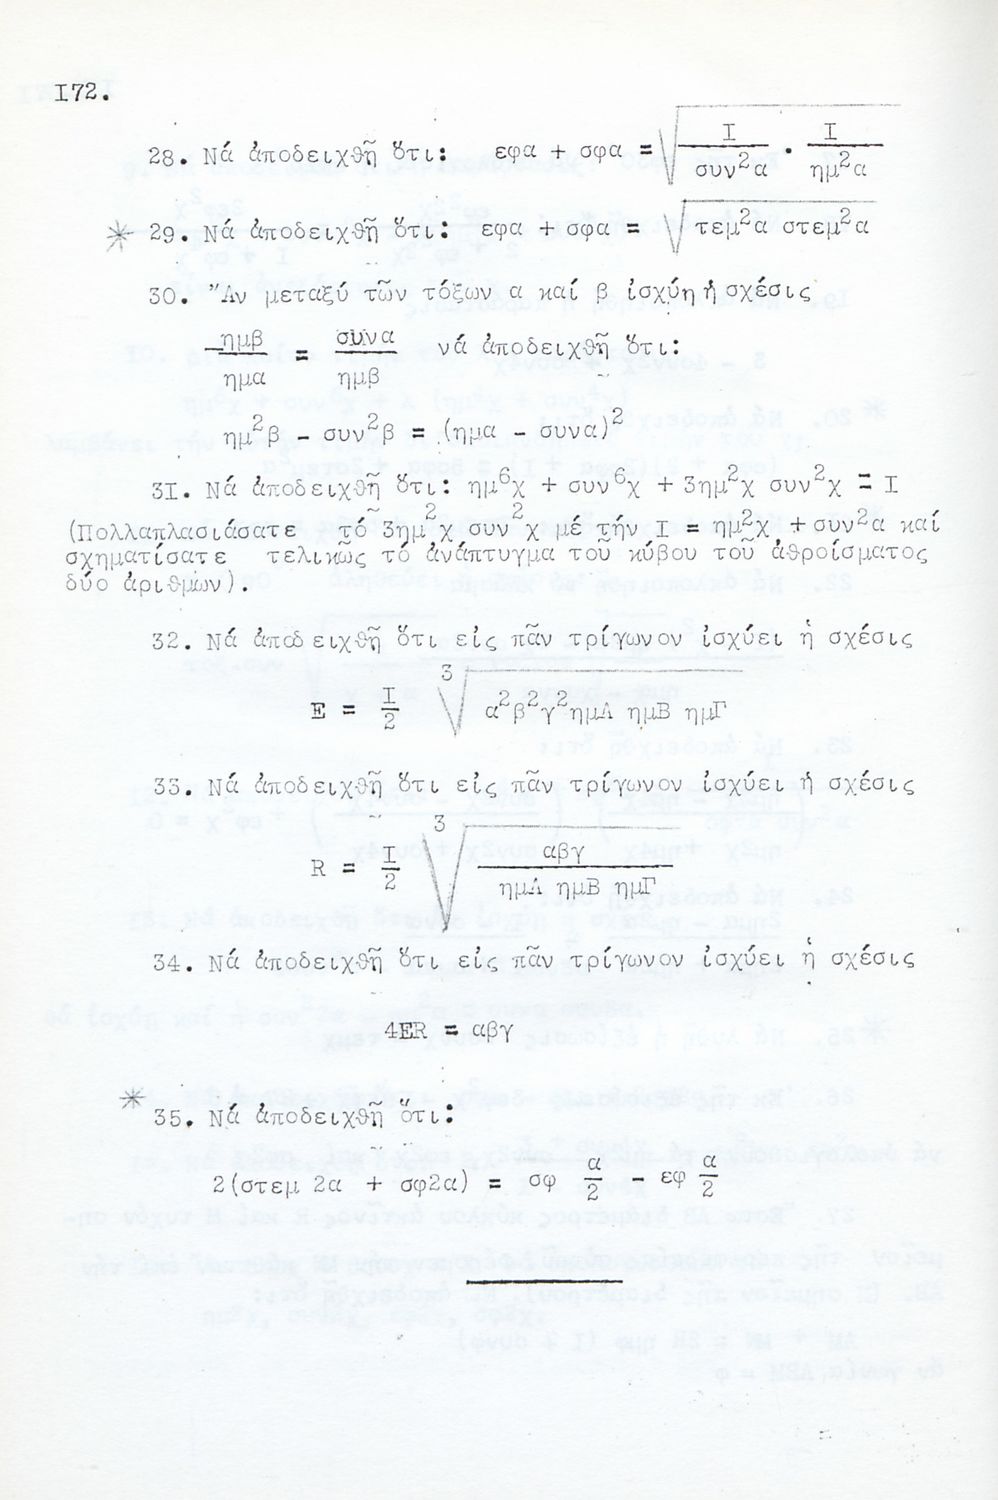 I72.
28. Νά ἀποδειχθῇ ὅτι: εφα + σφα = √ I/συν²α . I/ημ²α
29. Νά ἀποδειχθῇ ὅτι: εφα + σφα = √ τεμ²α στεμ²α
30. "Αν μεταξύ τῶν τόξων α καί β ἰσχύη ἡ σχέσις
ημβ/ημα = συνα/ημβ νά ἀποδειχθῇ ὅτι:
ημ²β - συν²β = (ημα - συνα)²
3I. Νά ἀποδειχθῇ ὅτι: ημ⁶χ + συν⁶χ + 3ημ²χ συν²χ = I
(Πολλαπλασιάσατε τό 3ημ²χ συν²χ μέ τήν I = ημ²χ + συν²α καί
σχηματίσατε τελικῶς τό ἀνάπτυγμα τοῦ κύβου τοῦ ἀθροίσματος
δύο ἀριθμῶν).
32. Νά ἀποδειχθῇ ὅτι εἰς πᾶν τρίγωνον ἰσχύει ἡ σχέσις
E = I/2 ³√ α²β²γ²ημΑ ημΒ ημΓ
33. Νά ἀποδειχθῇ ὅτι εἰς πᾶν τρίγωνον ἰσχύει ἡ σχέσις
R = I/2 ³√ αβγ/ημΑ ημΒ ημΓ
34. Νά ἀποδειχθῇ ὅτι εἰς πᾶν τρίγωνον ἰσχύει ἡ σχέσις
4ER = αβγ
35. Νά ἀποδειχθῇ ὅτι:
2(στεμ 2α + σφ2α) = σφ α/2 - εφ α/2